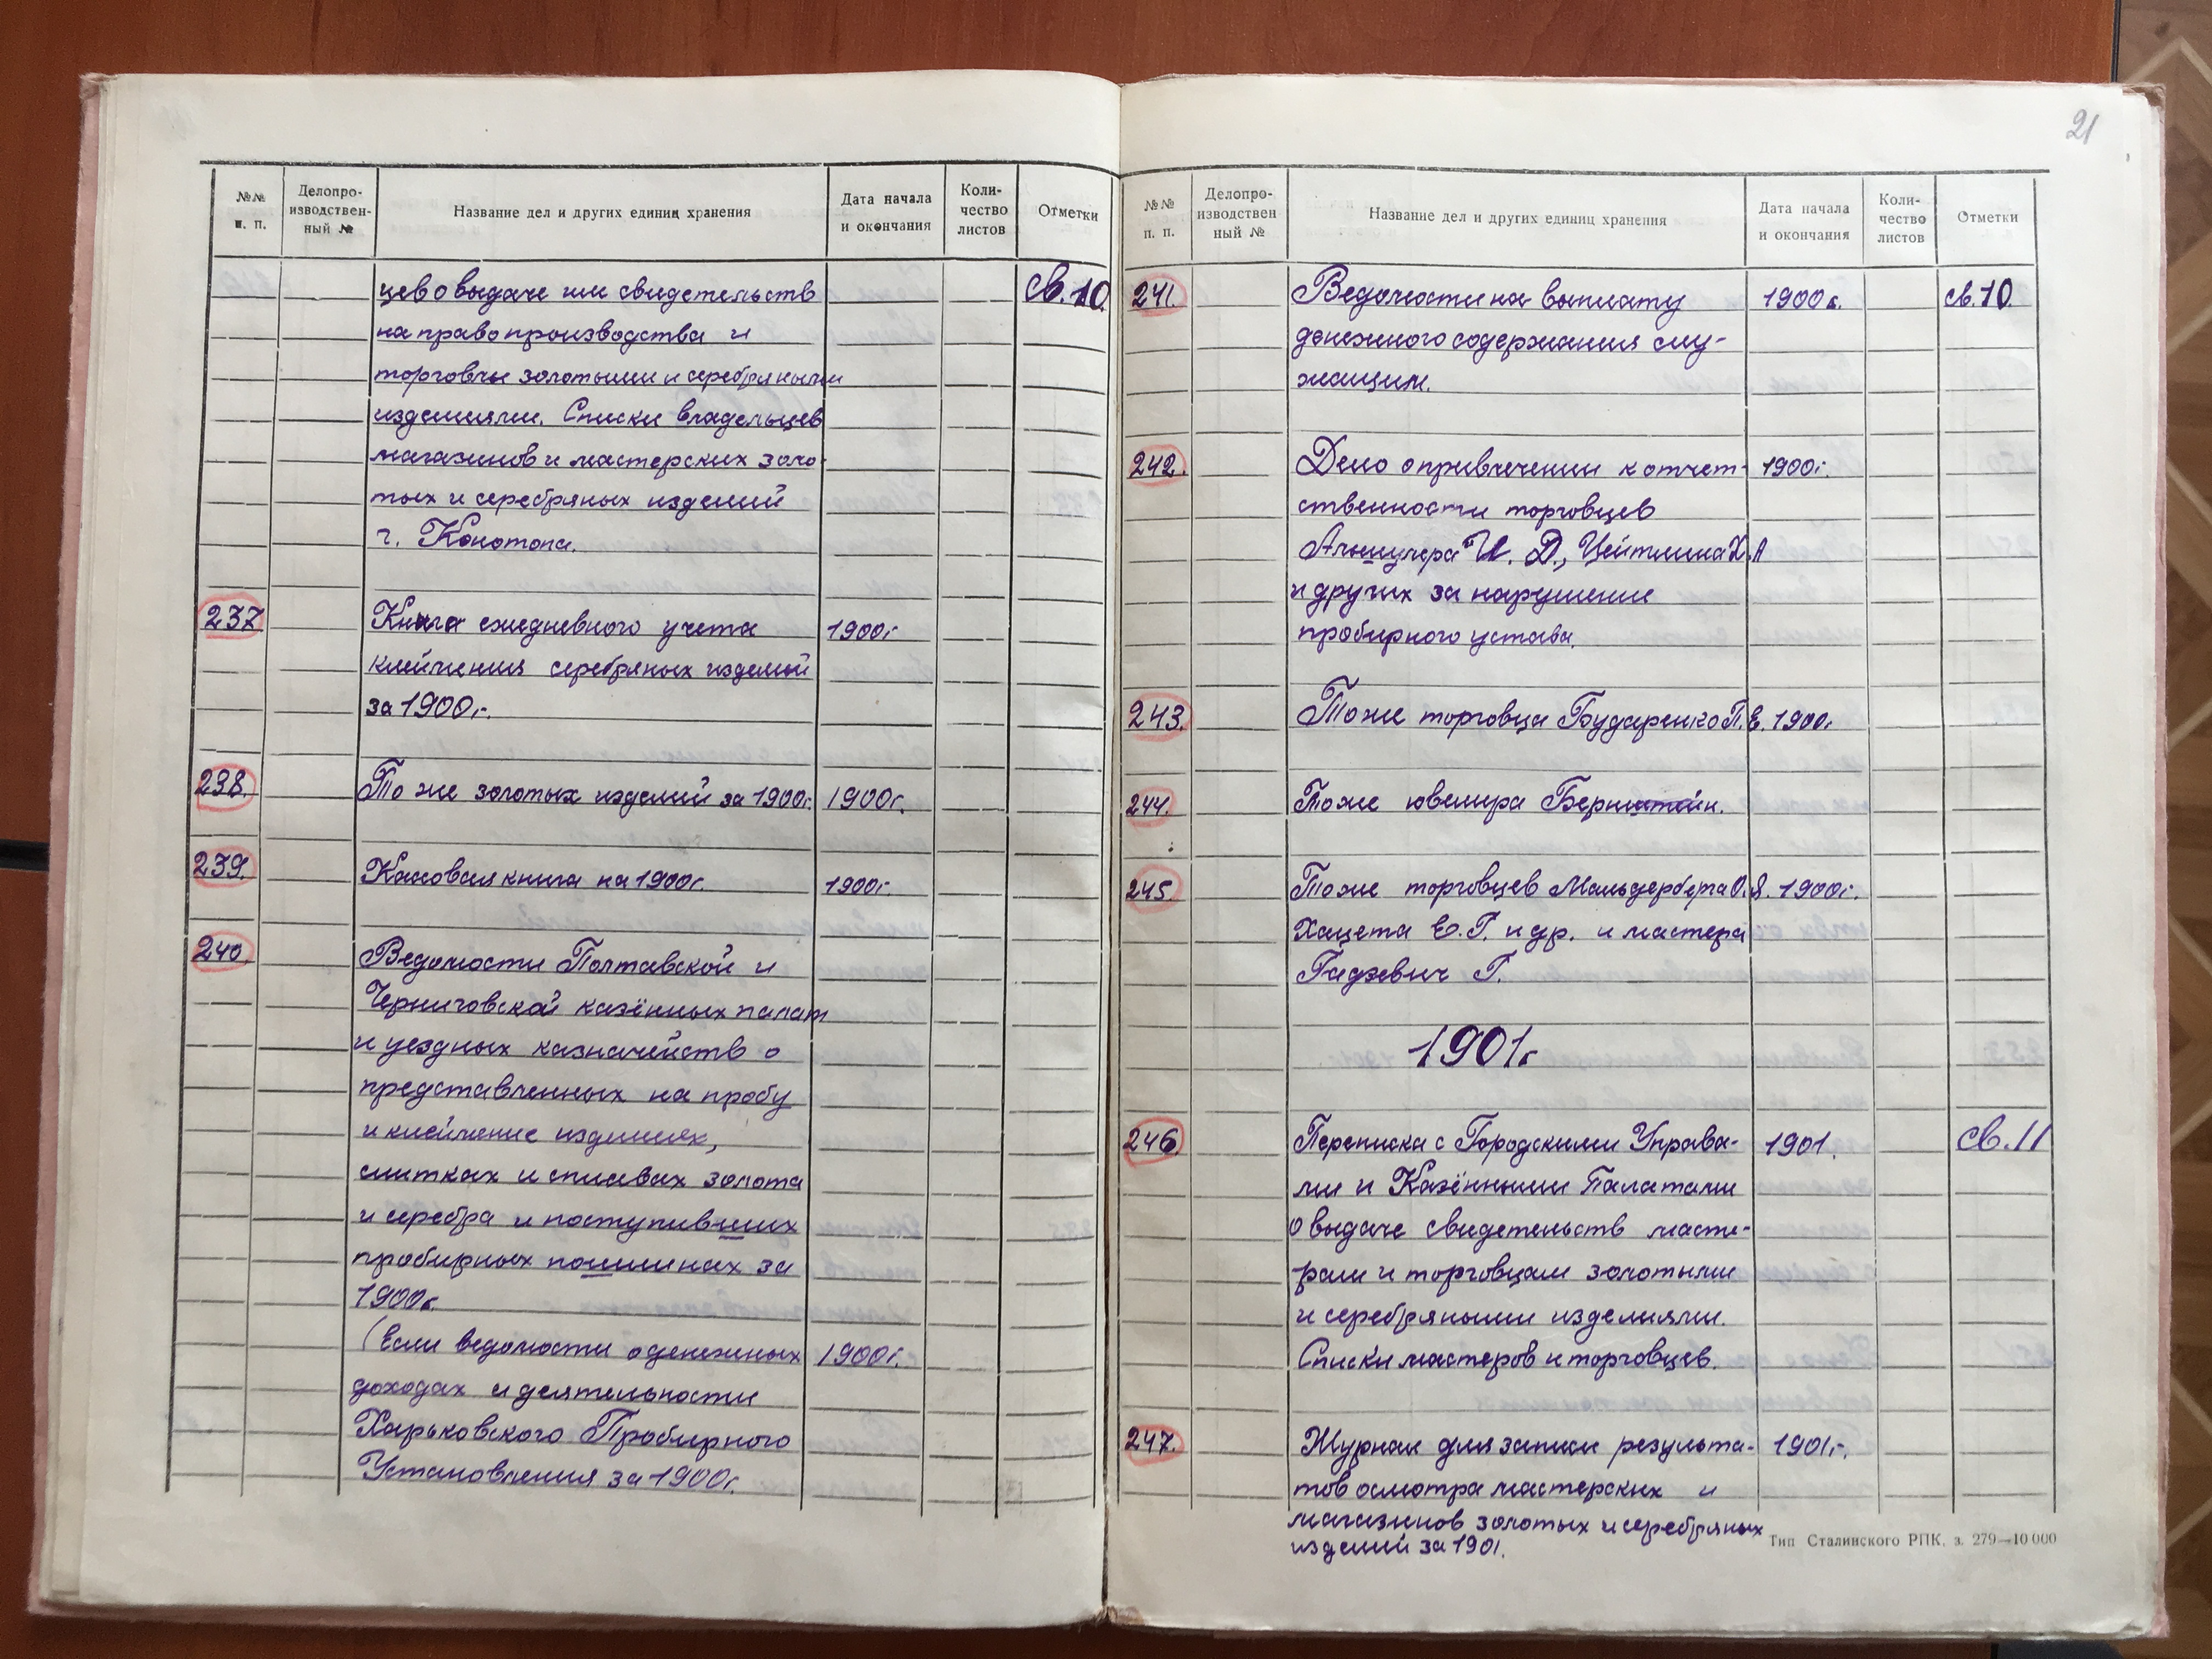 21
№№ п. п.
Делопроизводствен-ный №
Название дел и других единиц хранения
Дата начала и окончания
Коли-чество листов
Отметки
цев о выдаче им свидетельств св. 10.
на право производства и
торговлы золотыми и серебряными
изделиями. Списки владельцев
магазинов и мастерских золо-
тых и серебряных изделий
г. Конотопа.
237 Книга ежедневного учета 1900г.
клеймения серебряных изделий
за 1900г.
238. То же золотых изделий за 1900г. 1900г.
239. Кассовая книга на 1900г. 1900г.
240. Ведомости Полтавской и
Черниговской казённых палат
и уездных казначейств о
представленных на пробу
и клеймение изделиях,
слитках и сплавах золота
и серебра и поступивших
пробирных пошлинах за
1900г.
(Если ведомости о денежных 1900г.
доходах и деятельности
Харьковского Пробирного
Установления за 1900г.
№№ п. п.
Делопро-изводствен ный №
Название дел и других единиц хранения
Дата начала и окончания
Коли-чество листов
Отметки
241. Ведомости на выплату 1900г. св. 10
денежного содержания слу-
жащим.
242. Дело о привлечении к отчет- 1900г.
ственности торговцев
Альшулера И. Д., Цейтлина Х.А
и других за нарушение
пробирного устава.
243. То же торговца Бударенко П.Е. 1900г.
244. То же ювелира Бернштейн.
245. То же торговцев Мальдерберга О.Я. 1900г.
Хацета Е.Г. и др. и мастера
Гадзевич Г.
1901г
246. Переписка с Городскими Управа- 1901. св. 11
ми и Казёнными Палатами
о выдаче свидетельств масте-
рам и торговцам золотыми
и серебряными изделиями.
Списки мастеров и торговцев.
247. Журнал для записи результа- 1901г.
тов осмотра мастерских и
магазинов золотых и серебряных
изделий за 1901.
Тип Сталинского РПК. з. 279—10 000